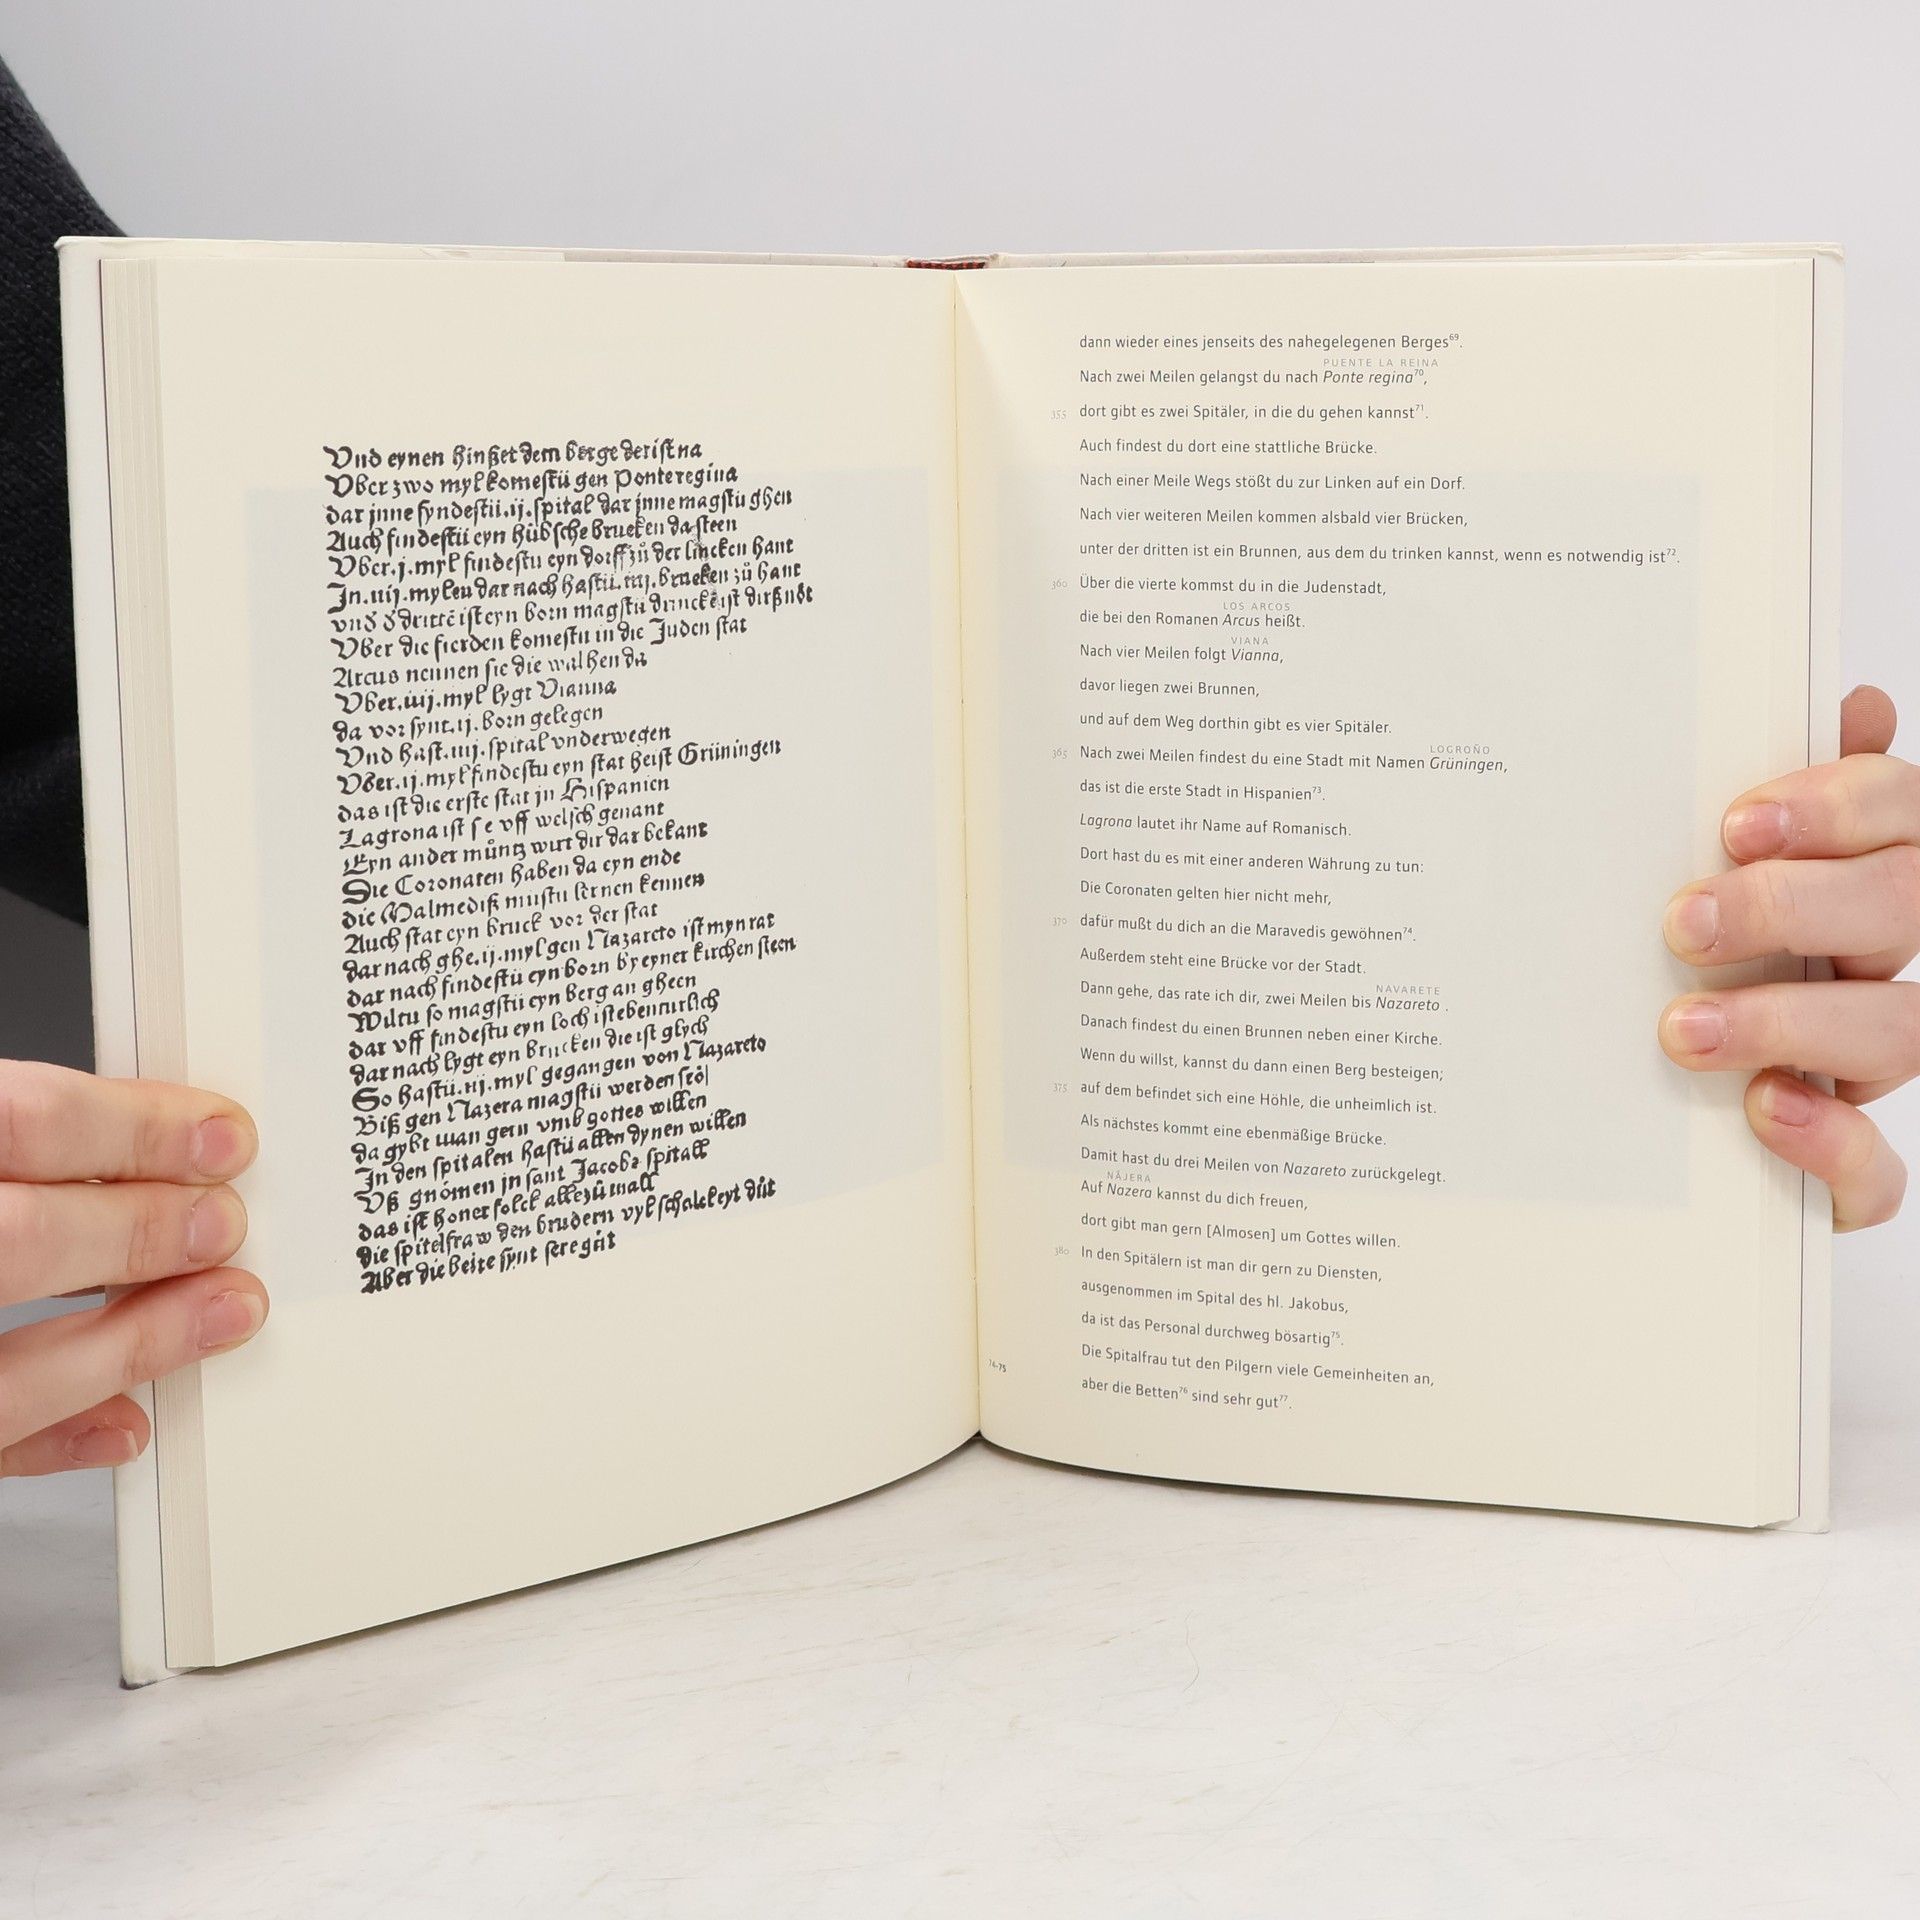 Vnd eynen hinßet dem berge der ist na
Vber zwo myl komestu gen Ponteregina
dar jnne fyndestu .ij. spital dar jnne magstu ghen
Auch findestu eyn hübsche brucken da steen
Vber .j. myl findestu eyn dorff zů der lincken hant
Jn .iiij. mylen dar nach hastu .iiij. brucken zů hant
vnd d dritte ist eyn born magstu
Vber die fierden komestu in die Juden stat
Arcus nennen sie die walhen da
Vber .iiij. myl lygt Vianna
da vor synt .ij. born gelegen
Vnd hast .iiij. spital vnderwegen
Vber .ij. myl findestu eyn stat heist Grüningen
das ist die erste stat jn Hispanien
Lagrona ist vff welsch genant
Eyn ander müntz wirt dir dar bekant
Die Coronaten haben da eyn ende
die Malmediß mustu lernen kennen
Auch stat eyn bruck vor der stat
dar nach ghe .ij. myl gen Nazareto ist myn rat
dar nach findestu eyn born by eyner kirchen steen
Wiltu so magstu eyn berg an gheen
dar vff findestu eyn loch ist ebenturlich
dar nach lygt eyn brucken die ist glych
So hastu .iij. myl gegangen von Nazareto
Biß gen Nazera magstu werden fro
da gybt man gern vmb gottes willen
In den spitalen hastu allen dynen willen
Vß gnomen jn sant Jacobs spitall
das ist honer folck allezů mall
die spitelfraw den brudern vyl schalckeyt důt
Aber die beite synt sere gůt
dann wieder eines jenseits des nahegelegenen Berges⁶⁹.
PUENTE LA REINA
Nach zwei Meilen gelangst du nach Ponte regina⁷⁰,
355 dort gibt es zwei Spitäler, in die du gehen kannst⁷¹.
Auch findest du dort eine stattliche Brücke.
Nach einer Meile Wegs stößt du zur Linken auf ein Dorf.
Nach vier weiteren Meilen kommen alsbald vier Brücken,
unter der dritten ist ein Brunnen, aus dem du trinken kannst, wenn es notwendig ist⁷².
360 Über die vierte kommst du in die Judenstadt,
LOS ARCOS
die bei den Romanen Arcus heißt.
VIANA
Nach vier Meilen folgt Vianna,
davor liegen zwei Brunnen,
und auf dem Weg dorthin gibt es vier Spitäler.
LOGROÑO
365 Nach zwei Meilen findest du eine Stadt mit Namen Grüningen,
das ist die erste Stadt in Hispanien⁷³.
Lagrona lautet ihr Name auf Romanisch.
Dort hast du es mit einer anderen Währung zu tun:
Die Coronaten gelten hier nicht mehr,
370 dafür mußt du dich an die Maravedis gewöhnen⁷⁴.
Außerdem steht eine Brücke vor der Stadt.
NAVARETE
Dann gehe, das rate ich dir, zwei Meilen bis Nazareto .
Danach findest du einen Brunnen neben einer Kirche.
Wenn du willst, kannst du dann einen Berg besteigen;
375 auf dem befindet sich eine Höhle, die unheimlich ist.
Als nächstes kommt eine ebenmäßige Brücke.
Damit hast du drei Meilen von Nazareto zurückgelegt.
NÁJERA
Auf Nazera kannst du dich freuen,
dort gibt man gern [Almosen] um Gottes willen.
380 In den Spitälern ist man dir gern zu Diensten,
ausgenommen im Spital des hl. Jakobus,
da ist das Personal durchweg bösartig⁷⁵.
Die Spitalfrau tut den Pilgern viele Gemeinheiten an,
aber die Betten⁷⁶ sind sehr gut⁷⁷.
74-75